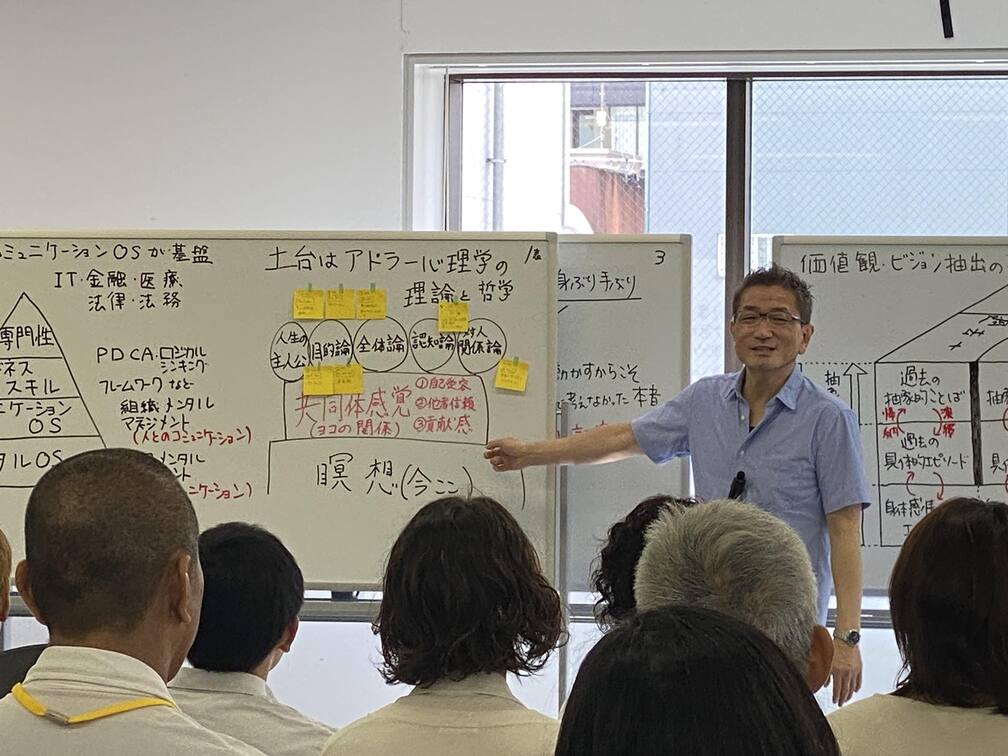 ミュニケーションOSが基盤
IT・金融・医療
法律・法務
専門性
ネス
スキル
ニケーション
OS
タルOS
PDCA・ロジカル
シンキング
フレームワークなど
組織メンタル
マネジメント
(人とのコミュニケーション)
メンタル
ント
ニケーション)
土台はアドラー心理学の
理論と哲学
人生の
主人公
目的論
全体論
認知論
対人
関係論
共同体感覚
(ヨコの関係)
①自己受容
②他者信頼
③貢献感
瞑想(今ここ)
3
身ぶり手ぶり
動かすからこそ
考えなかった本音
価値観・ビジョン抽出の
抽
過去の
抽象的ことば
帰納
演繹
過去の
具体的エピソード
身体感
抽
具